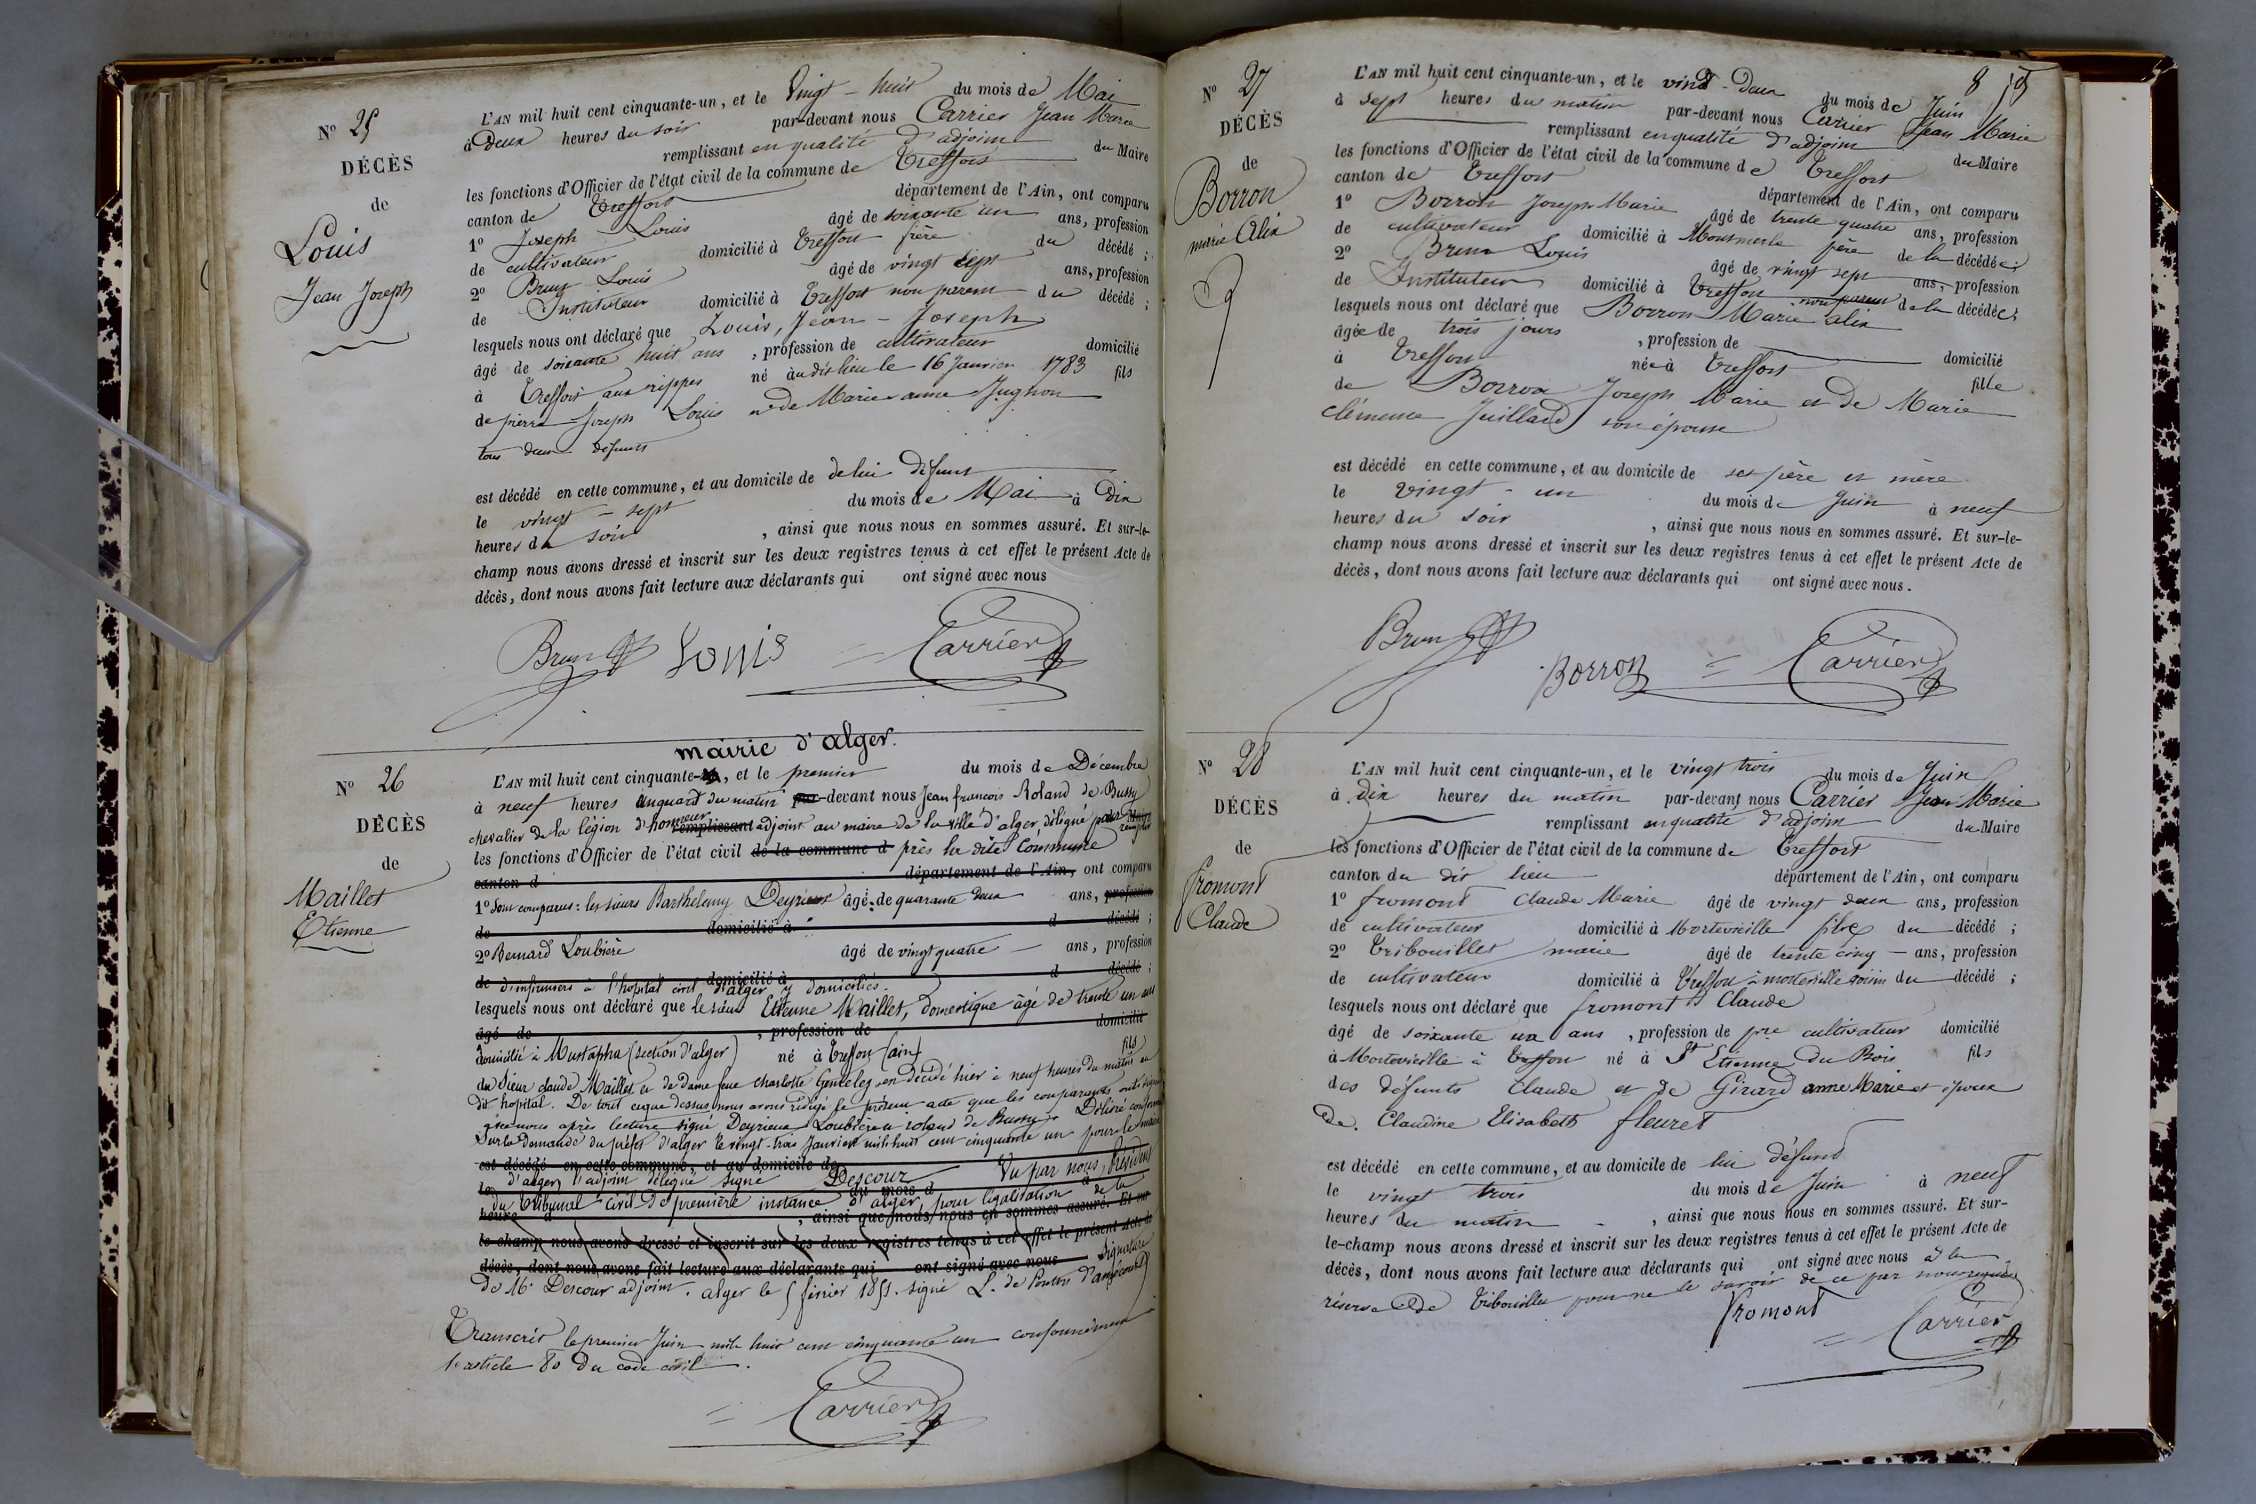 N° 25
DÉCÈS
de
Louis
Jean Joseph
L'AN mil huit cent cinquante-un, et le Vingt-huit du mois de Mai
à Deux heures du soir par-devant nous Carrier Jean Marie
remplissant en qualité d'adjoint du Maire
les fonctions d'Officier de l'état civil de la commune de Treffort
canton de Treffort département de l'Ain, ont comparu
1° Joseph Louis âgé de soixante un ans, profession
de cultivateur domicilié à Treffort frère du décédé ;
2° Brun Louis âgé de vingt sept ans, profession
de Instituteur domicilié à Treffort non parent du décédé ;
lesquels nous ont déclaré que Louis, Jean-Joseph
âgé de soixante huit ans , profession de cultivateur domicilié
à Treffort aux rippes né audit lieu le 16 Janvier 1783 fils
de pierre-Joseph Louis de Marie-anne Jughon
tous deux défunts
est décédé en cette commune, et au domicile de de lui défunt
le vingt-sept du mois de Mai à Dix
heures du soir , ainsi que nous nous en sommes assuré. Et sur-le-
champ nous avons dressé et inscrit sur les deux registres tenus à cet effet le présent Acte de
décès, dont nous avons fait lecture aux déclarants qui ont signé avec nous
Brun Louis Carrier
N° 26
DÉCÈS
de
Maillet
Etienne
mairie d'alger.
L'AN mil huit cent cinquante , et le premier du mois de Décembre
à neuf heures un quart du matin par-devant nous Jean françois Roland de Bussy
chevalier de la légion d'honneur remplissant adjoint au maire de la ville d'alger, délégué pour remplir
les fonctions d'Officier de l'état civil de la commune d près la dite Commune
canton d département de l'Ain, ont comparu
1° Sont comparus : les sieurs Barthelemy Deyrieux âgé de quarante deux ans, profession
de domicilié à d décédé ;
2° Bernard Loubière âgé de vingt quatre ans, profession
de d'infirmiers à l'hopital civil d'alger y domiciliés. domicilié à d décédé ;
lesquels nous ont déclaré que le sieur Etienne Maillet, domestique âgé de trente un ans
âgé de , profession de domicilié
domicilié à Mustapha (section d'alger) né à Treffort (ain) fils
du Sieur claude Maillet et de dame feue charlotte est décédé hier à neuf heures du matin au
dit hopital. De tout ce que dessus nous avons rédigé le présent acte que les comparants ont signé
avec nous après lecture signé Deyrieux Loubière et roland de Bussy. Délivré conforme
sur la demande du préfet d'alger le vingt-trois Janvier mil huit cent cinquante un pour le maire
est décédé en cette commune, et au domicile de
d'alger, l'adjoint délégué signé Descour Vu par nous, président
le du mois d à
du Tribunal civil de première instance d'alger, pour légalisation de la
heure d , ainsi que nous nous en sommes assuré. Et sur
le champ nous avons dressé et inscrit sur les deux registres tenus à cet effet le présent Acte de
décès, dont nous avons fait lecture aux déclarants qui ont signé avec nous signature
de Mr Descour adjoint. alger le 5 février 1851. signé L. de
Transcrit le premier Juin mil huit cent cinquante un conformément
l'article 80 du code civil.
Carrier
8
N° 27
DÉCÈS
de
Borron
marie Alix
L'AN mil huit cent cinquante-un, et le vingt-Deux du mois de Juin
à sept heures du matin par-devant nous Carrier Jean Marie
remplissant en qualité d'adjoint du Maire
les fonctions d'Officier de l'état civil de la commune de Treffort
canton de Treffort département de l'Ain, ont comparu
1° Borron Joseph Marie âgé de trente quatre ans, profession
de cultivateur domicilié à Montmerle père de la décédée ;
2° Brun Louis âgé de vingt sept ans, profession
de Instituteur domicilié à Treffort non parent de la décédée ;
lesquels nous ont déclaré que Borron Marie alix
âgée de trois jours , profession de domicilié
à Treffort née à Treffort fille
de Borron Joseph Marie et de Marie
clémence Juilland son épouse
est décédé en cette commune, et au domicile de ses père et mère
le vingt-un du mois de Juin à neuf
heures du soir , ainsi que nous nous en sommes assuré. Et sur-le-
champ nous avons dressé et inscrit sur les deux registres tenus à cet effet le présent Acte de
décès, dont nous avons fait lecture aux déclarants qui ont signé avec nous.
Brun Borron Carrier
N° 28
DÉCÈS
de
fromont
Claude
L'AN mil huit cent cinquante-un, et le vingt trois du mois de Juin
à dix heures du matin par-devant nous Carrier Jean Marie
remplissant en qualité d'adjoint du Maire
les fonctions d'Officier de l'état civil de la commune de Treffort
canton du dit lieu département de l'Ain, ont comparu
1° fromont Claude Marie âgé de vingt deux ans, profession
de cultivateur domicilié à Mortevieille fils du décédé ;
2° Tribouillet marie âgé de trente cinq ans, profession
de cultivateur domicilié à Treffort à mortevieille voisin du décédé ;
lesquels nous ont déclaré que fromont Claude
âgé de soixante un ans , profession de pre cultivateur domicilié
à Mortevieille à Treffort né à St Etienne du Bois fils
des défunts Claude et de Girard anne Marie et époux
de Claudine Elisabeth fleuret
est décédé en cette commune, et au domicile de lui défunt
le vingt trois du mois de Juin à neuf
heures du matin , ainsi que nous nous en sommes assuré. Et sur-
le-champ nous avons dressé et inscrit sur les deux registres tenus à cet effet le présent Acte de
décès, dont nous avons fait lecture aux déclarants qui ont signé avec nous à la
réserve de Tribouillet pour ne le savoir de ce par nous requis
fromont Carrier